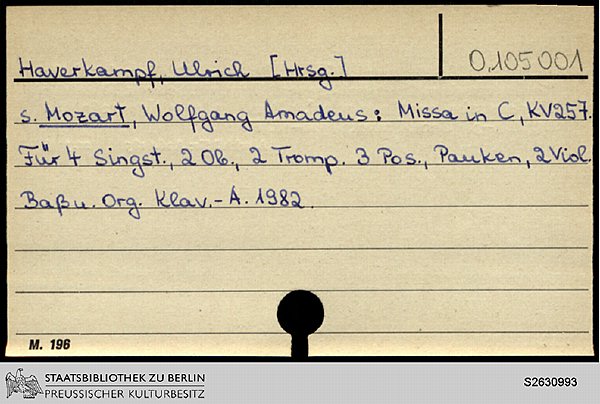 Haverkampf, Ulrich [Hrsg.]
0,105 001
s. Mozart, Wolfgang Amadeus: Missa in C, KV257.
Für 4 Singst., 2 Ob., 2 Tromp. 3 Pos., Pauken, 2 Viol.
Baß u. Org. Klav.-A. 1982.
M. 196
STAATSBIBLIOTHEK ZU BERLIN
PREUSSISCHER KULTURBESITZ
S2630993